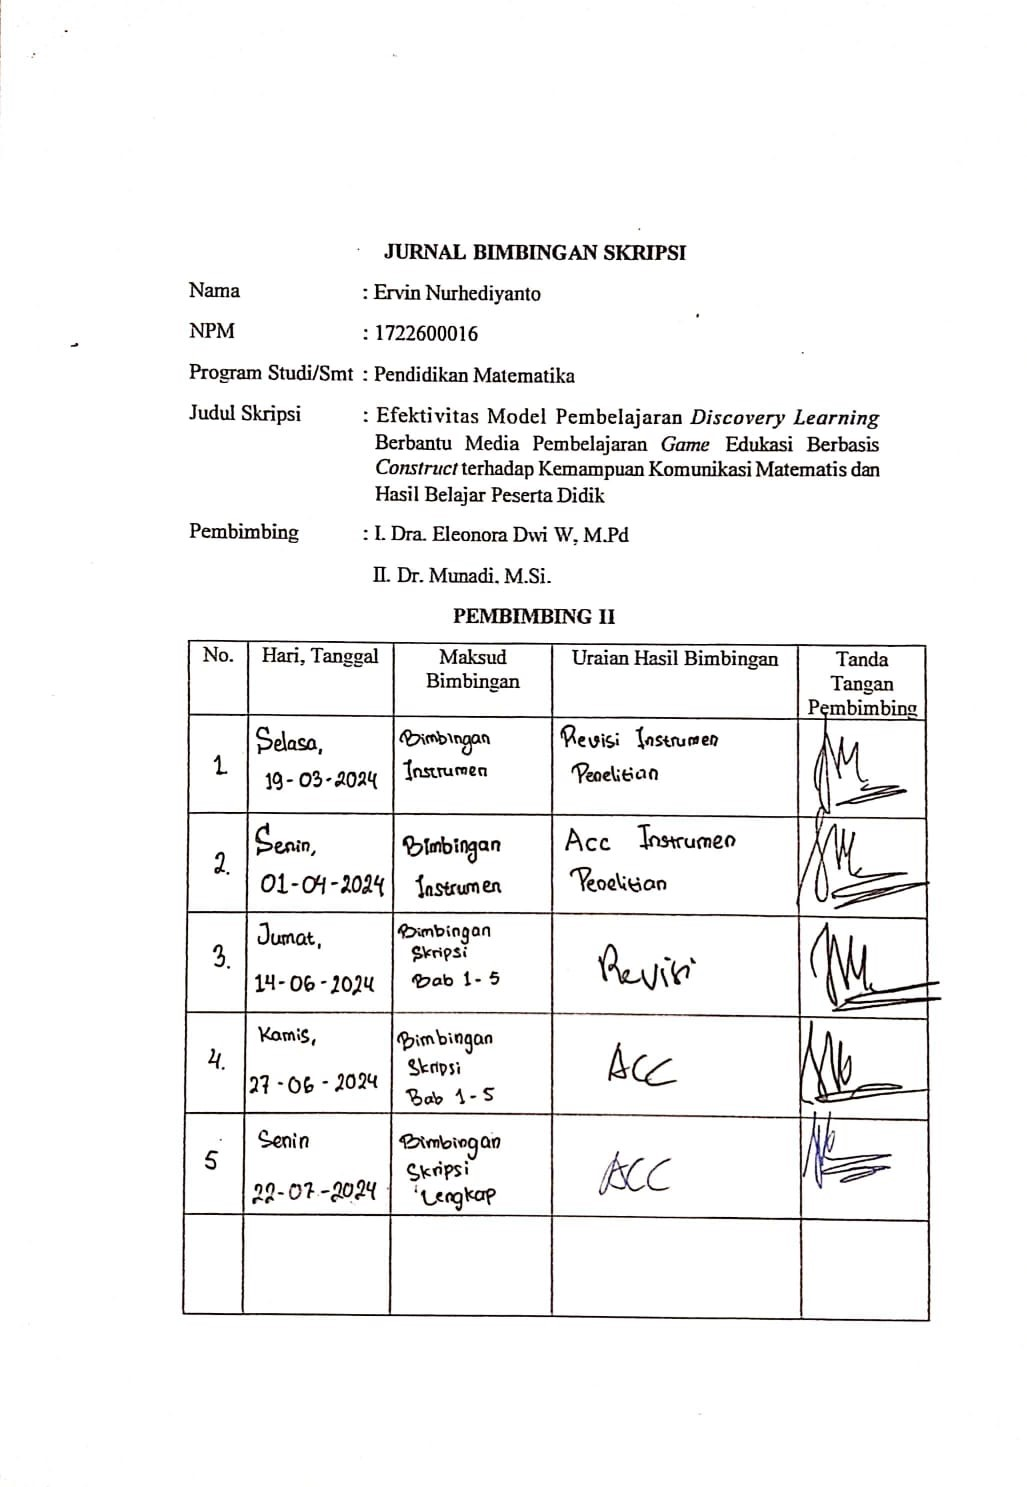 JURNAL BIMBINGAN SKRIPSI
Nama : Ervin Nurhediyanto
NPM : 1722600016
Program Studi/Smt : Pendidikan Matematika
Judul Skripsi : Efektivitas Model Pembelajaran Discovery Learning
Berbantu Media Pembelajaran Game Edukasi Berbasis
Construct terhadap Kemampuan Komunikasi Matematis dan
Hasil Belajar Peserta Didik
Pembimbing : I. Dra. Eleonora Dwi W, M.Pd
II. Dr. Munadi. M.Si.
PEMBIMBING II
No. Hari, Tanggal Maksud Bimbingan Uraian Hasil Bimbingan Tanda Tangan Pembimbing
1 Selasa, 19-03-2024 Bimbingan Instrumen Revisi Instrumen Penelitian
2. Senin, 01-04-2024 Bimbingan Instrumen Acc Instrumen Penelitian
3. Jumat, 14-06-2024 Bimbingan Skripsi Bab 1-5 Revisi
4. Kamis, 27-06-2024 Bimbingan Skripsi Bab 1-5 ACC
5 Senin 22-07-2024 Bimbingan Skripsi Lengkap ACC